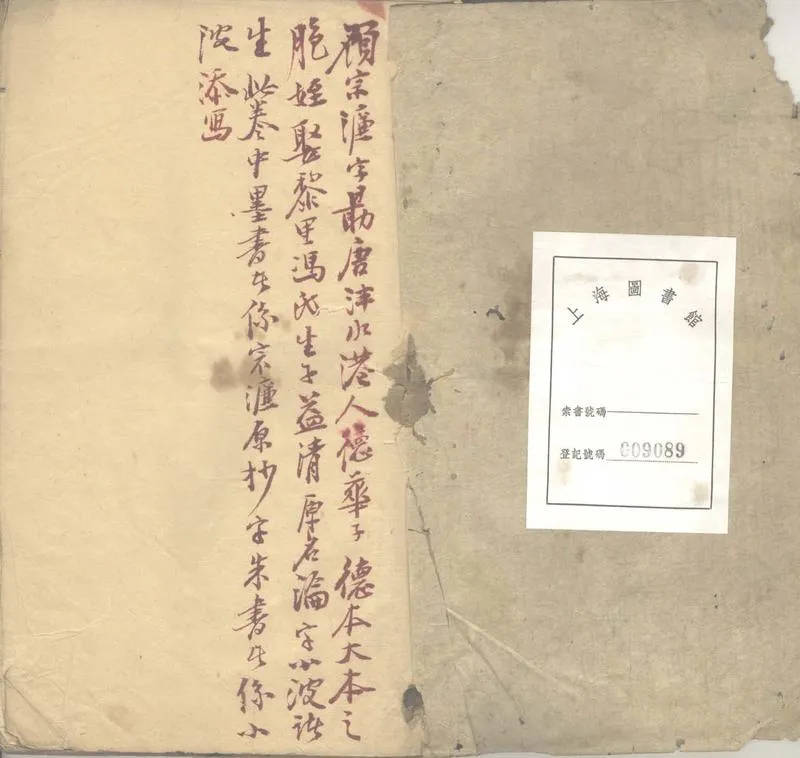 顧宗濂字勗唐泮水港人德華子德本大本之
胞姪娶黎里馮氏生子益清原名瀹字小波諸
生此卷中墨書者係宗濂原抄字朱書者係小
波添寫
上海圖書館
索書號碼
登記號碼 609089